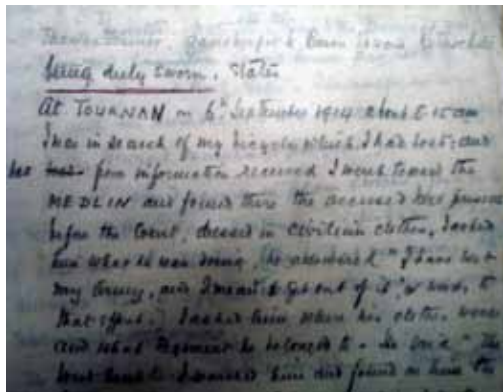 Thomas Gamekeeper
being duly sworn, states
At TOURNAN on 6th September 1914 about
I was in search of my bicycle which I had lost, and
from information received I went toward the
and found there the accused now present
before the Court, dressed in civilian clothes, I asked
him what he was doing, he answered "I have lost
my Army, and I meant to get out of it", or words to
that effect. I asked him where his clothes were
and what Regiment he belonged to. He said "The
West Kent". I searched him and found on him the